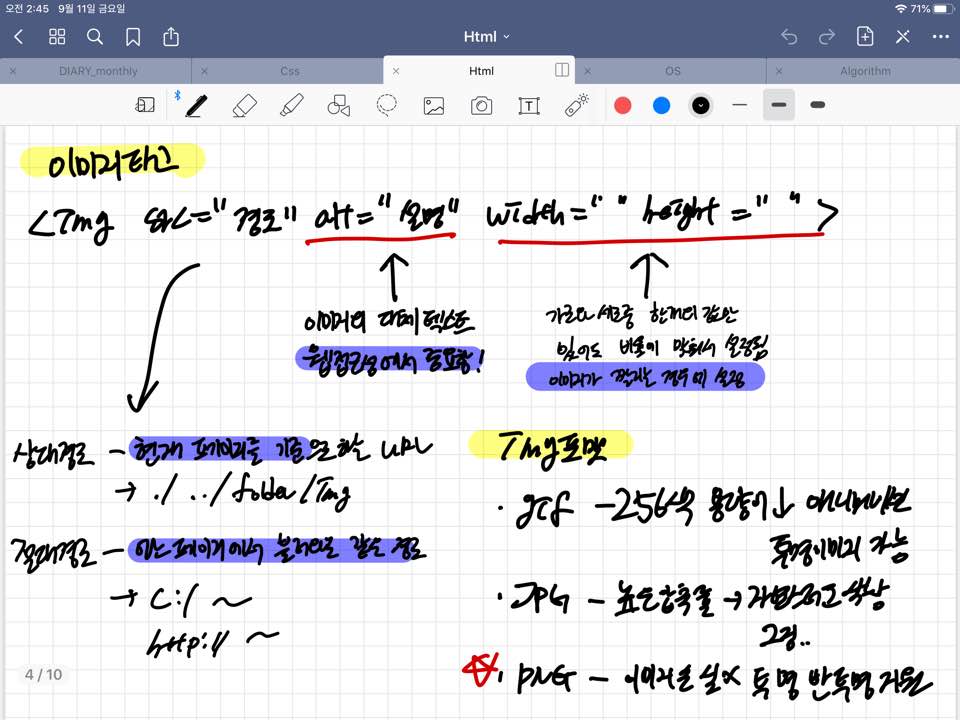 오전 2:45 9월 11일 금요일
71%
Html
DIARY_monthly
Css
Html
OS
Algorithm
이미지태그
<Img src="경로" alt="설명" width=" " height=" ">
이미지의 대체 텍스트
웹접근성에서 중요함!
가로와 세로중 한가지 값만
있어도 비율이 맞춰서 설정됨
이미지가 깨지는 경우에 설정
상대경로 - 현재 페이지를 기준으로하는 URL
→ ./ ../folder/Img
절대경로 - 어느페이지에서 불러와도 같은 경로
→ C:/ ~
http:// ~
Img포맷
· gif - 256색 용량이↓ 애니메이션
투명이미지 가능
· JPG - 높은압축률 →
그림..
· PNG - 이미지손실x 투명 반투명 지원
4 / 10